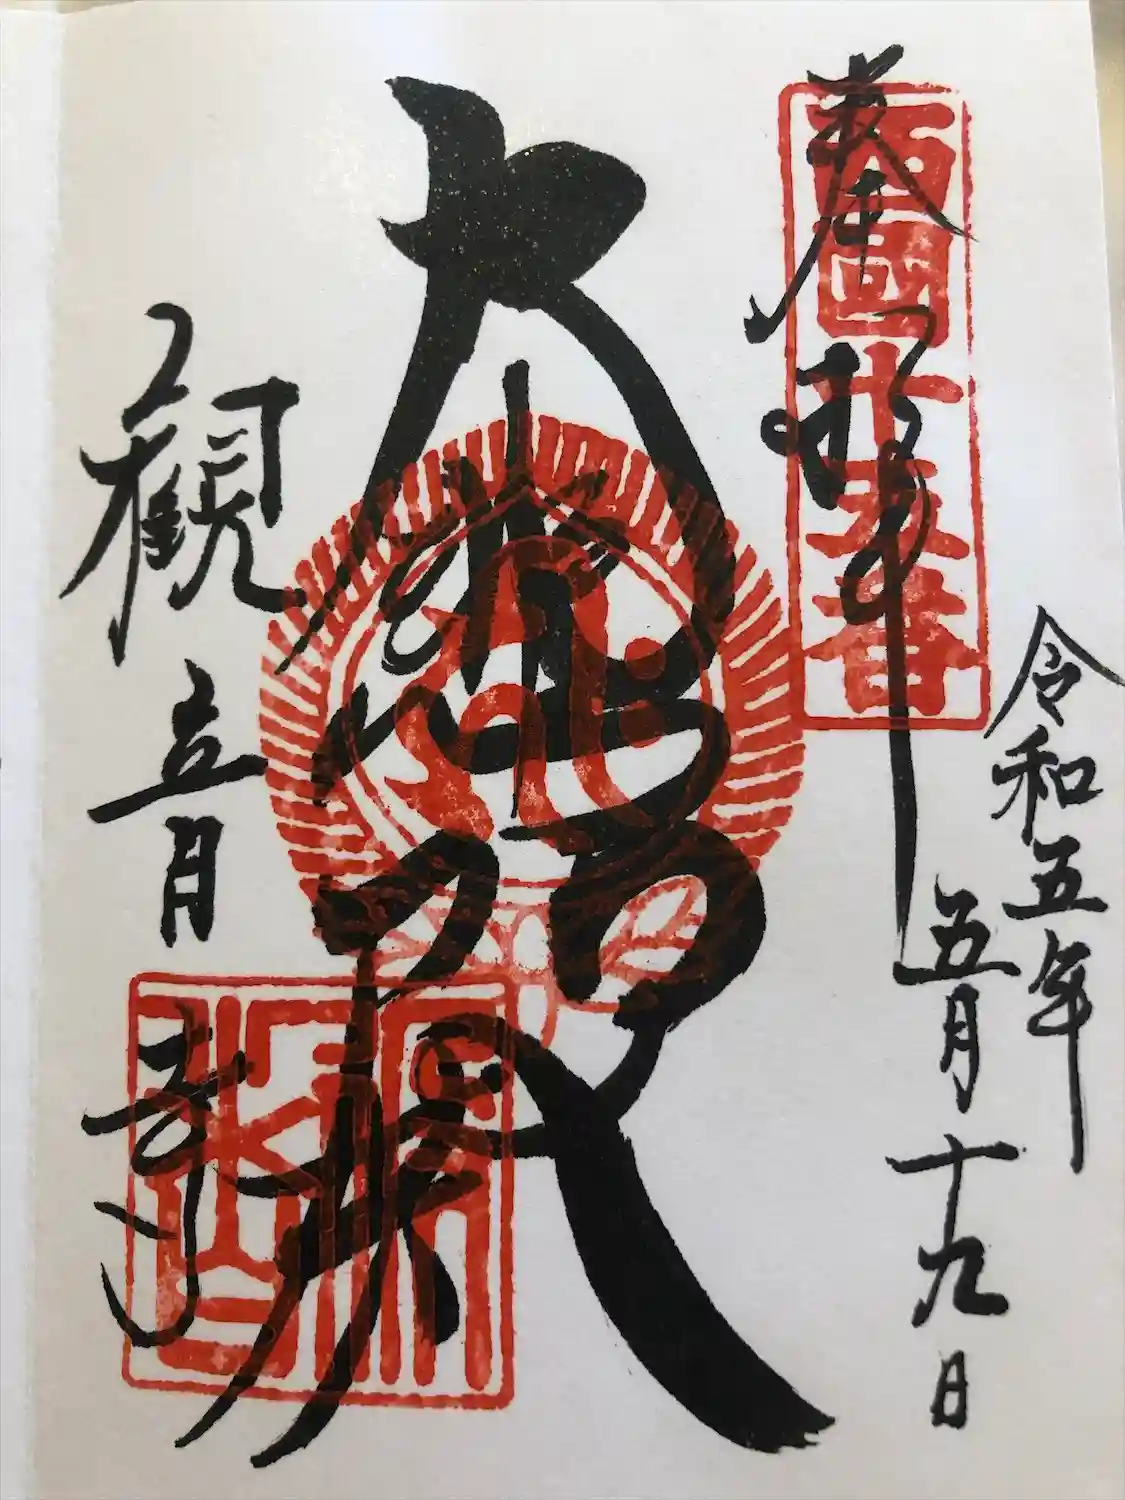 令和五年
五月十九日
奉拝
西國十五番
大悲殿
観音寺